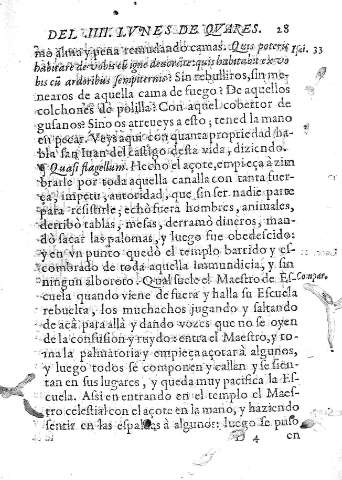 DEL IIII. LVNES DE QVARES. 28
mo alma y peña remudando camas. Quis poterit Isai. 33
habitare de vobis cū igne deuorāte: quis habitabit ex vo
bis cū ardoribus sempiternis? Sin rebulliros, sin me
nearos de aquella cama de fuego? De aquellos
colchones de polilla? Con aquel cobertor de
gusanos? Si no os atreueys a esto; tened la mano
en pecar. Veys aqui con quanta propriedad ha-
bla san Iuan del castigo desta vida, diziendo.
Quasi flagellum. Hecho el açote, empieça à zim
brarle por toda aquella canalla con tanta fuer-
ça, impetu, autoridad, que sin ser nadie parte
para resistirle, echò fuera hombres, animales,
derribò tablas, mesas, derramò dineros, man-
dò sacar las palomas, y luego fue obedescido:
y en vn punto quedò el templo barrido y es-
combrado de toda aquella immundicia, y sin
ningun alboroto. Qual suele el Maestro de Es- Compar.
cuela quando viene de fuera y halla su Escuela
rebuelta, los muchachos jugando y saltando
de acà para allà y dando vozes que no se oyen
de la confusion y ruydo: entra el Maestro, y to-
ma la palmatoria y empieça açotar à algunos,
y luego todos se componen y callan y se sien-
tan en sus lugares, y queda muy pacifica la Es-
cuela. Assi en entrando en el templo el Maes-
tro celestial con el açote en la mano, y haziendo
sentir en las espaldas à algunos: luego se puso
D 4 en